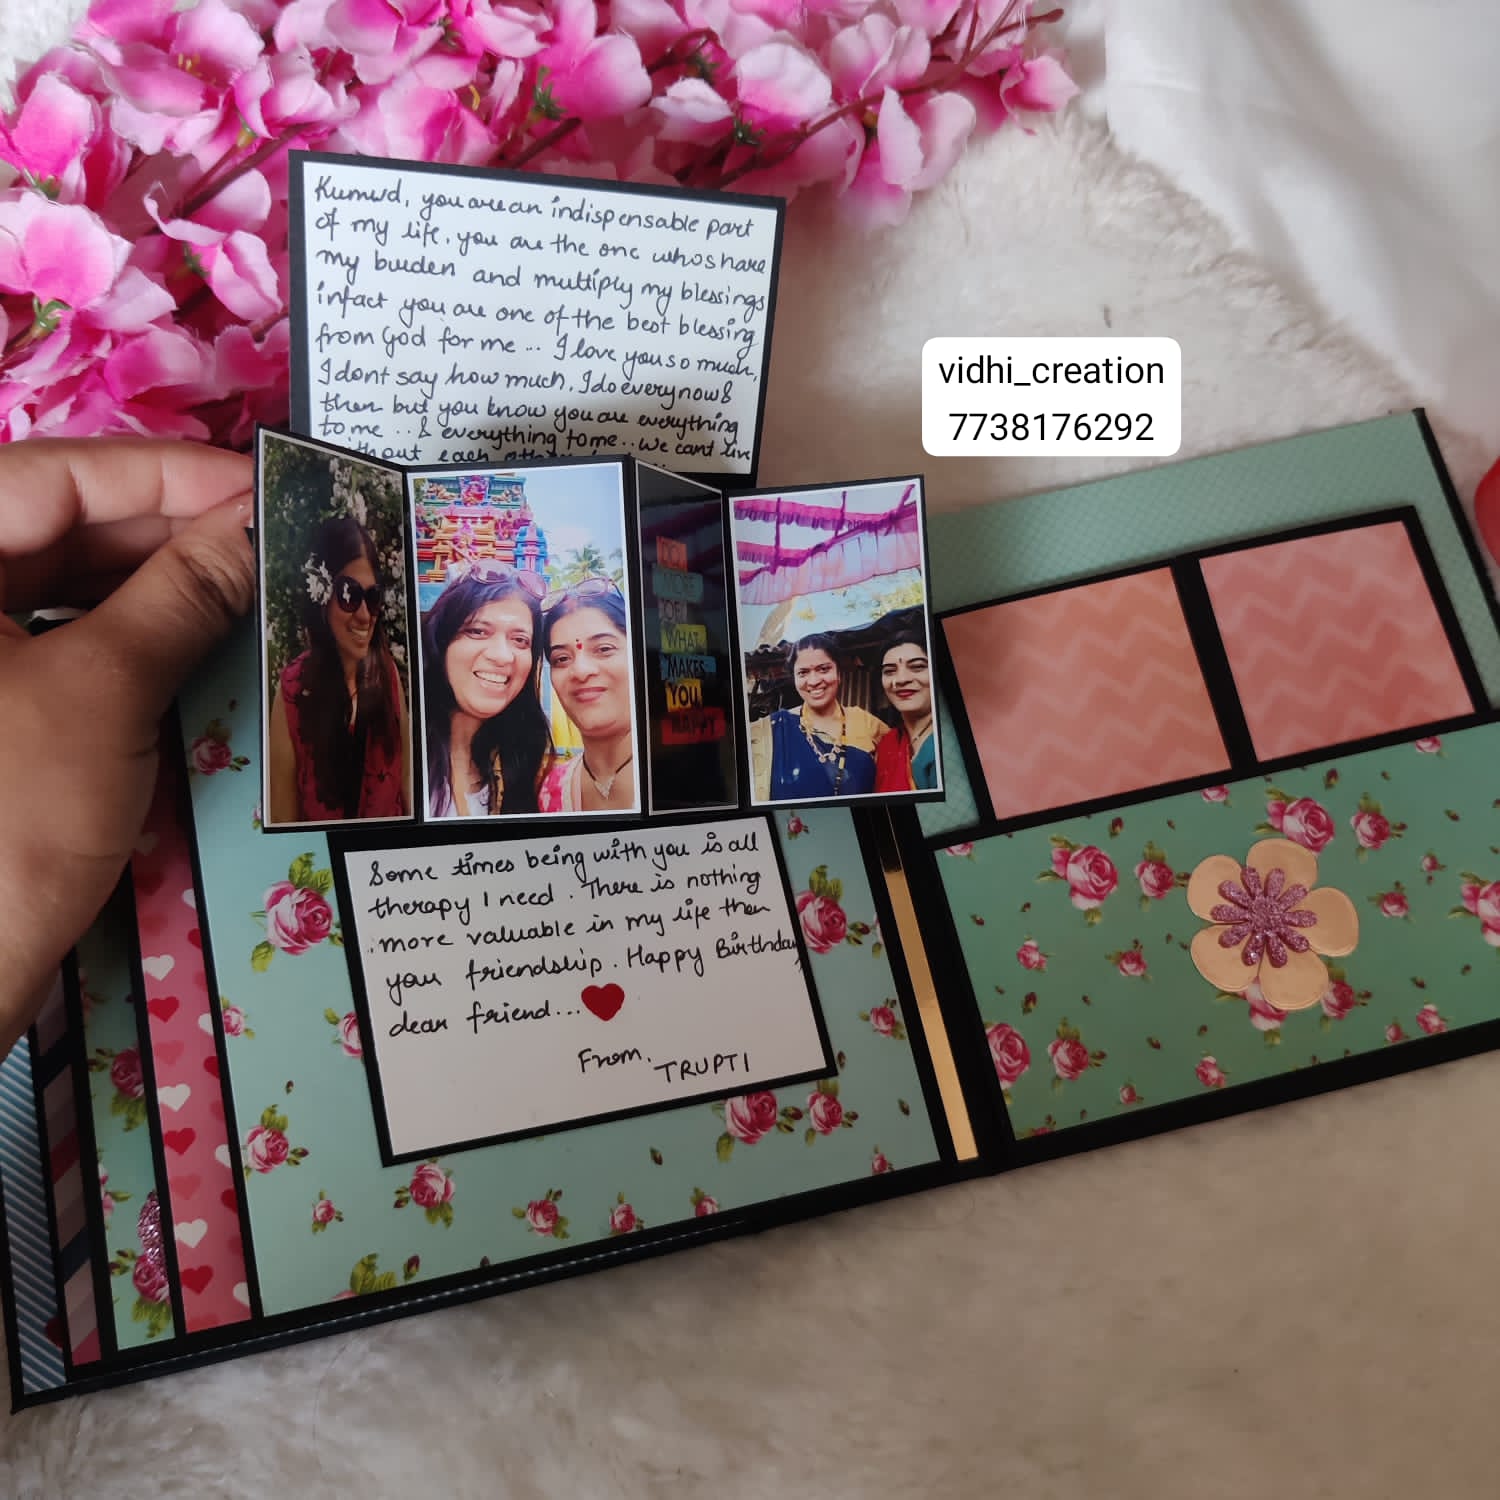 Kumud, you are an indispensable part
of my life. you are the one who share
my burden and multiply my blessings
infact you are one of the best blessing
from God for me ... I love you so much,
I dont say how much. I do every now &
then but you know you are everything
to me .. & everything to me .. We cant live
without each other
vidhi_creation
7738176292
DO
MORE
OF
WHAT
MAKES
YOU
HAPPY
Some times being with you is all
therapy I need . There is nothing
more valuable in my life then
your friendship . Happy Birthday
dear friend...
From,
TRUPTI